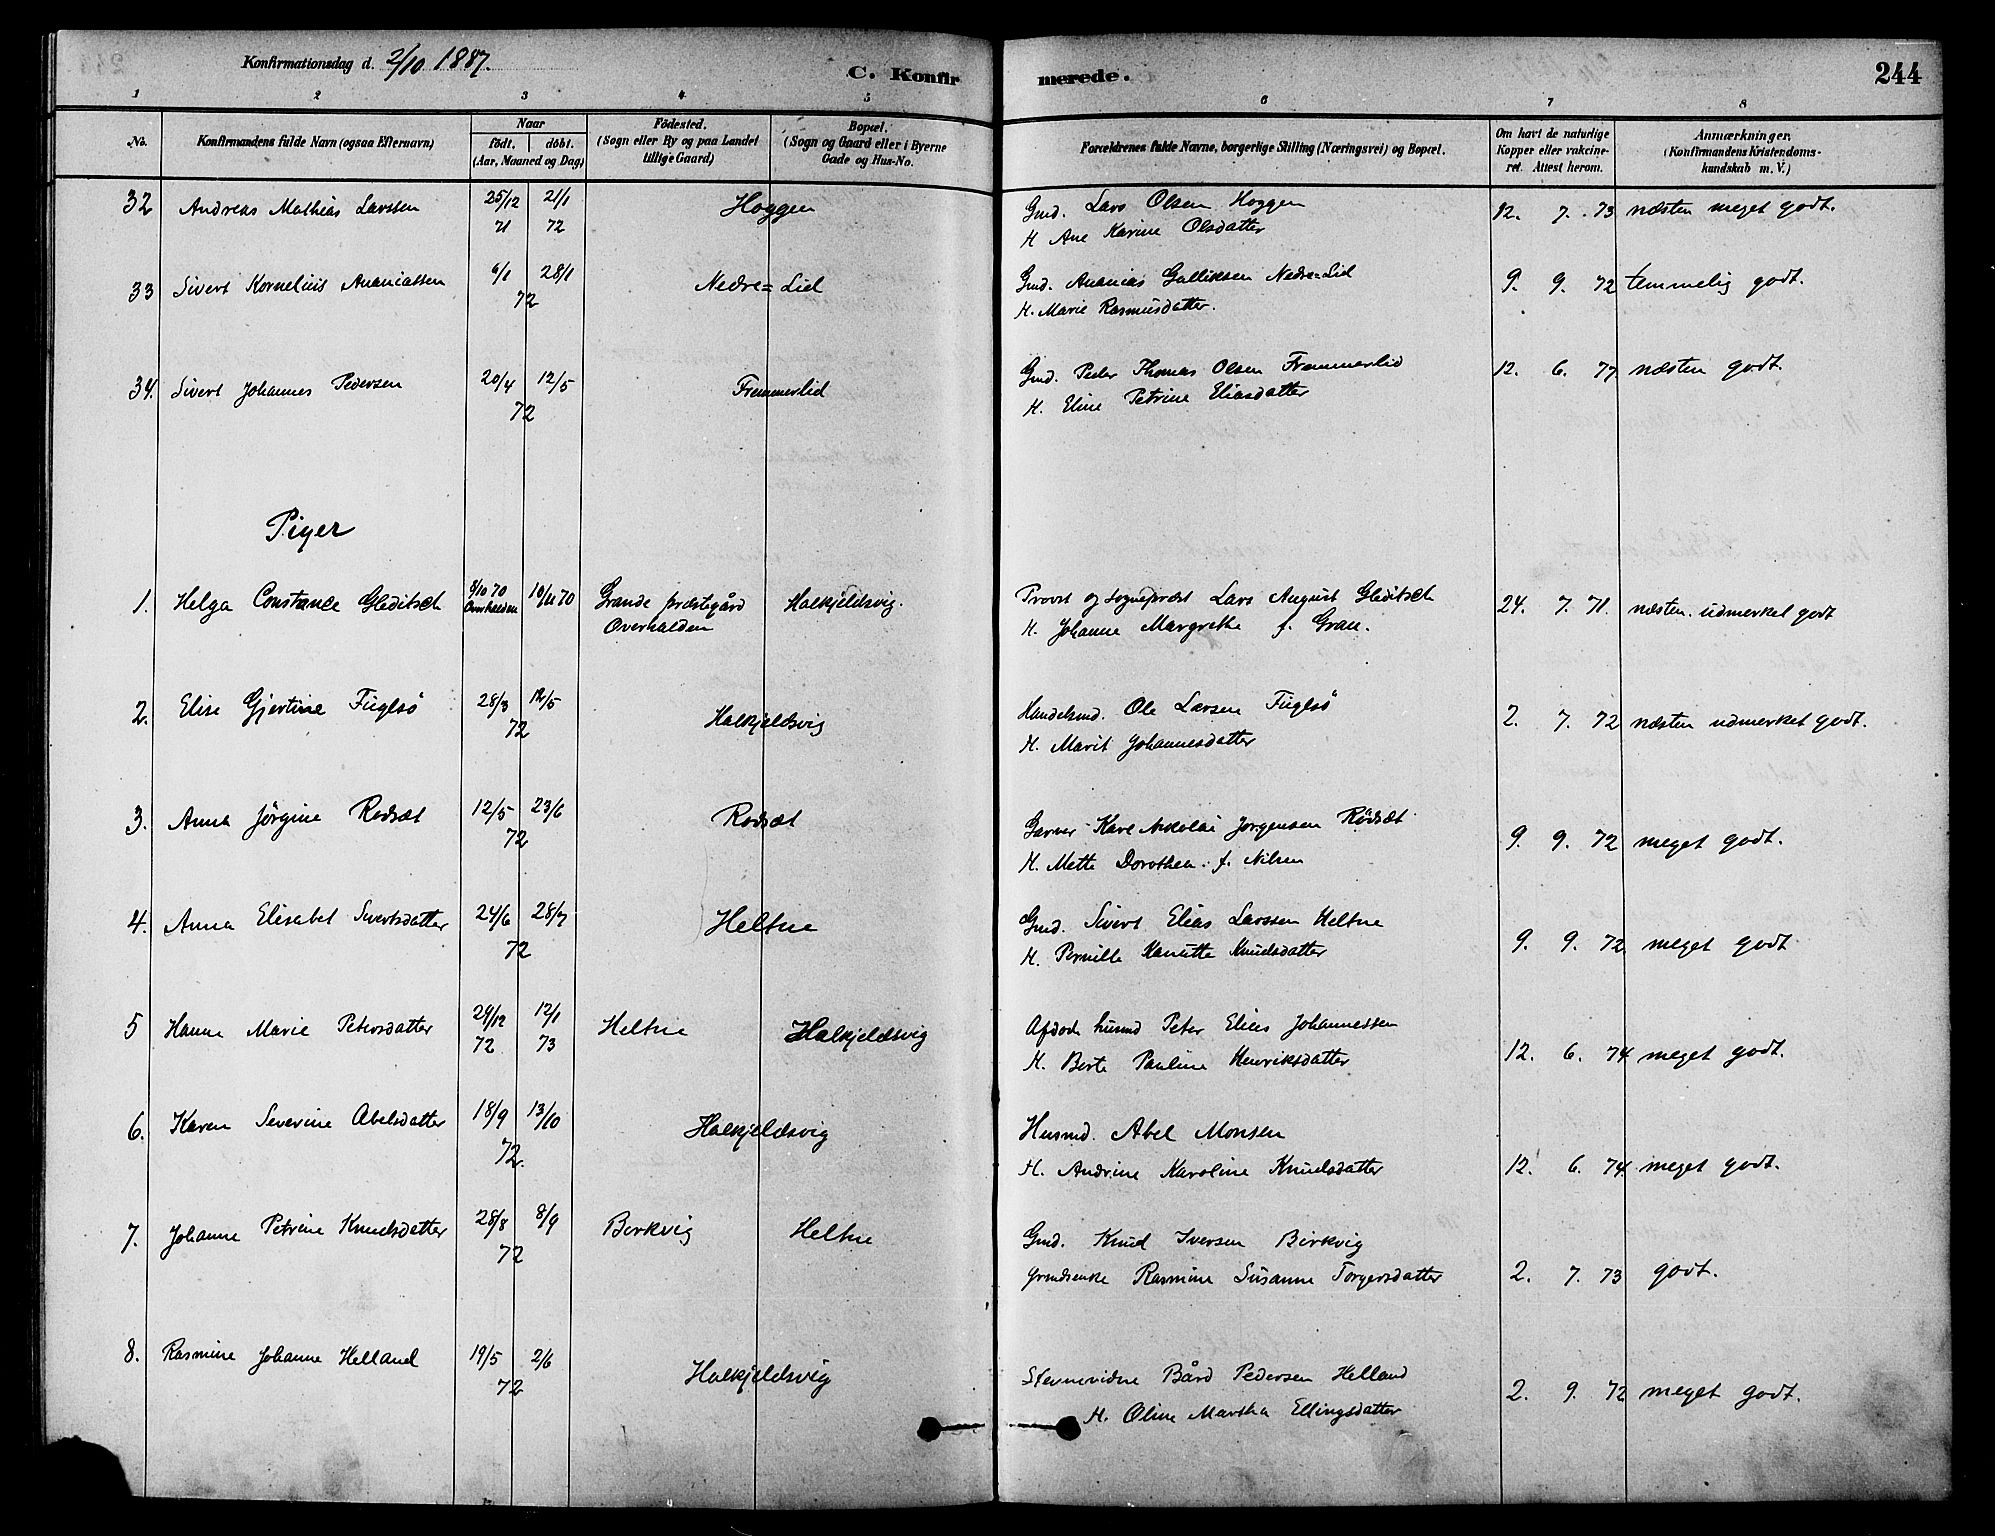 Konfirmationsdag d. 2/10 1887.
C. Konfir
merede.
244
1 2 3 4 5 6 7 8
No.
Konfirmandens fulde Navn (ogsaa Efternavn)
Naar
födt. döbt.
(Aar, Maaned og Dag)
Födested.
(Sogn eller By og paa Landet
tillige Gaard)
Bopæl.
(Sogn og Gaard eller i Byerne
Gade og Hus-No.
Forældrenes fulde Navne, borgerlige Stilling (Næringsvei) og Bopæl.
Om havt de naturlige
Kopper eller vakcine-
ret. Attest herom.
Anmærkninger.
(Konfirmandens Kristendoms-
kundskab m. V.)
32 Andreas Mathias Larssen 25/12 21/1 Hoggen Gmd. Lars Olsen Hoggen 12. 7. 73 næsten meget godt.
71 72 H. Ane Karine Olsdatter
33 Sivert Kornelius Ananiassen 6/1 28/1 Nedre=Lid Gmd. Ananias Gulliksen Nedre=Lid 9. 9. 72 temmelig godt.
72 H. Marie Rasmusdatter.
34. Sivert Johannes Pedersen 20/4 12/5 Fremmerlid Gmd. Peder Thomas Olsen Fremmerlid 12. 6. 77 næsten godt.
72 H. Eline Petrine Eliasdatter
Piger
1. Helga Constance Gleditsch 8/10 70 10/11 70 Grande præstegård Halkjeldsvig. Provst og sognepræst Lars August Gleditsch 24. 7. 71. næsten udmerket godt
Overhalden Overhalden H. Johanne Margrethe f. Gran.
2. Elise Gjertine Fuglsö 28/3 12/5 Halkjeldsvig Handelsmd. Ole Larsen Fuglsö 2. 7. 72 næsten udmerket godt.
72 H. Marit Johannesdatter
3. Anna Jörgine Rödsæt 12/5 23/6 Rodsæt Garver Karl Nikolai Jorgensen Rödsæt 9. 9. 72 meget godt.
72 H. Mette Dorothea f. Nilsen
4. Anna Elisabet Sivertsdatter 24/6 28/7 Heltne Gmd. Sivert Elias Larssen Heltne 9. 9. 72 meget godt
72 H. Pernille Kanutte Knudsdatter
5 Hanne Marie Petersdatter 29/12 12/1 Heltne Halkjeldsvig Afdöde husmd Peter Elias Johannessen 12. 6. 74 meget godt.
72 73 H. Berte Pauline Henriksdatter
6. Karen Severine Abelsdatter 18/9 13/10 Halkjeldsvig Husmd. Abel Monsen
72. H. Andrine Karoline Knudsdatter 12. 6. 74 meget godt.
7. Johanne Petrine Knudsdatter 28/8 8/9 Birkvig Heltne Gmd. Knud Iversen Birkvig
72 Rasmine Susanne Torgersdatter 2. 7. 73 godt.
8. Rasmine Johanne Helland 19/5 2/6 Halkjeldsvig Stevnevidne Bård Pedersen Helland 2. 9. 72 meget godt.
72 H. Oline Martha Ellingsdatter